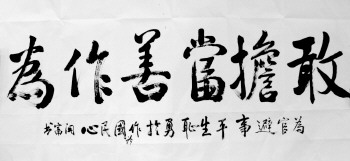 敢擔當善作為
為官避事平生耻勇於作國民心